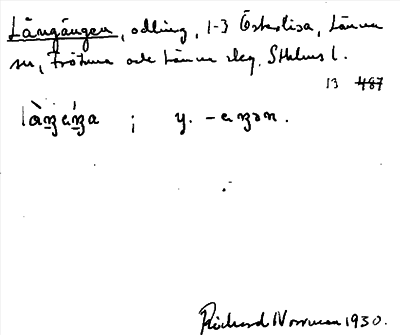 Långången, odling, 1-3 Österlisa, Länna
sn, Frötuna och Länna skg. Sthlms l.
13 487
làŋgáŋa ; y. -aŋən.
Rickard Norrman 1930.